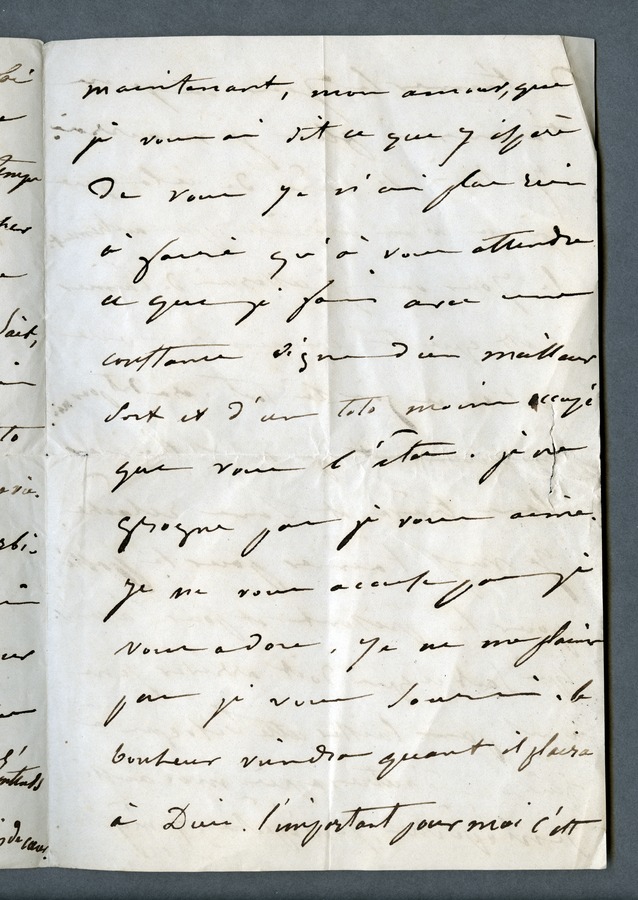 maintenant, mon amour, que
je vous ai dit ce que j'espère
de vous je n'ai plus rien
à faire qu'à vous attendre
ce que je fais avec une
constance digne d'un meilleur
sort et d'un toto moins occupé
que vous l'êtes. je ne
grogne pas je vous aime.
je ne vous accuse pas je
vous adore. je ne me plains
pas je vous souris. le
bonheur viendra quant il plaira
à Dieu. l'important pour moi c'est